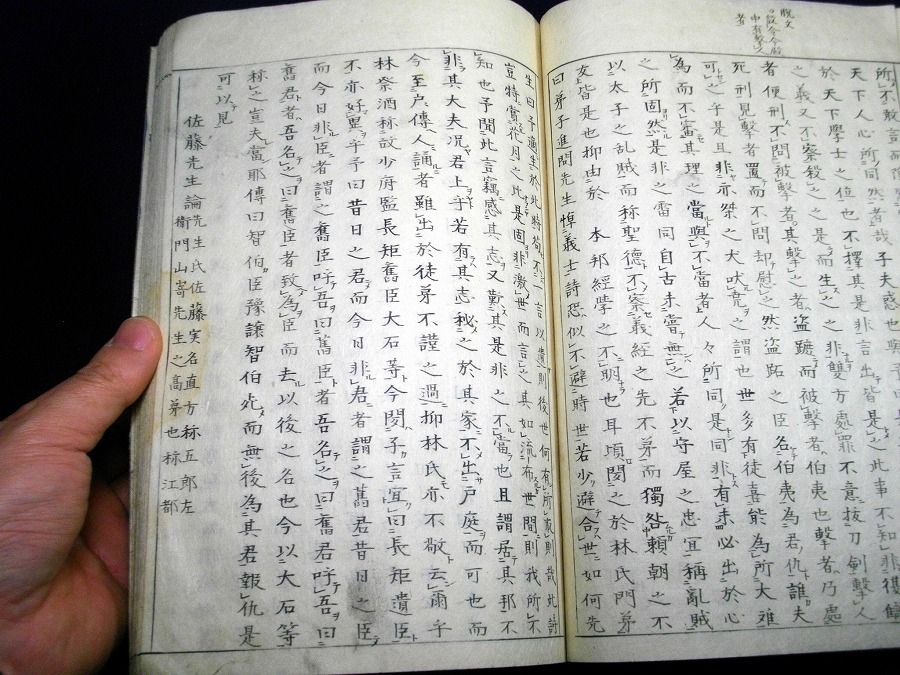 脱文
者
所不敢言而
天下人心所同然者哉子夫惑也與
於天下學士之位也不擇其是非言出皆是之此事不知非復讎
之義又不察殺之之是而生之之非雙方處罪不意抜刀剣撃人
者便刑不問被撃者其撃之者盗蹠而被撃者伯夷也撃者乃處
死刑見撃者置而不問却慰之然盗跖之臣名伯夷為君仇誰夫
可之乎是且非亦桀之犬吠堯之謂也世多有徒喜能為所大難
為而不審其理之當與不當者人々所同是同非有未必出於心
之所固然是非之雷同自古未嘗無之若以守屋之忠宜稱亂賊
以太子之乱賊而称聖德不察義經之先不弟而獨咎頼朝之不
友上皆是也抑由於 本邦經學之不明也耳頃聞之於林氏門弟
曰弟子進問先生悼義士詩恐似不避時世若少避合世如何先
生曰予適生於此時苟不一言以遺則後世何有所真則哉此詩
豈特賞花月之比是固非激世而言之其如流布世間則我所不
知也予聞此言竊感其志又歎其是非之不當也且謂居其邦不
非其大夫况君上乎若有其志秘之於其家不出戸庭而可也而
今至戸傳人誦者雖出於徒弟不謹之過抑林氏亦不敬云爾乎
林祭酒称故少府監長矩舊臣大石等今聞子言宜曰長矩遺臣
不亦好異乎予曰昔日之君而今日非君者謂之舊君昔日之臣
而今日非臣者謂之舊臣呼吾曰舊臣者吾名之曰舊君呼吾曰
舊君者吾名之曰舊臣者致為臣而去以後之名也今以大石等
称之豈夫當耶傳曰智伯臣豫譲智伯死而無後為其君報仇是
可以見
佐藤先生論
先生氏佐藤実名直方称五郎左
衛門山寄先生之高弟也称江都